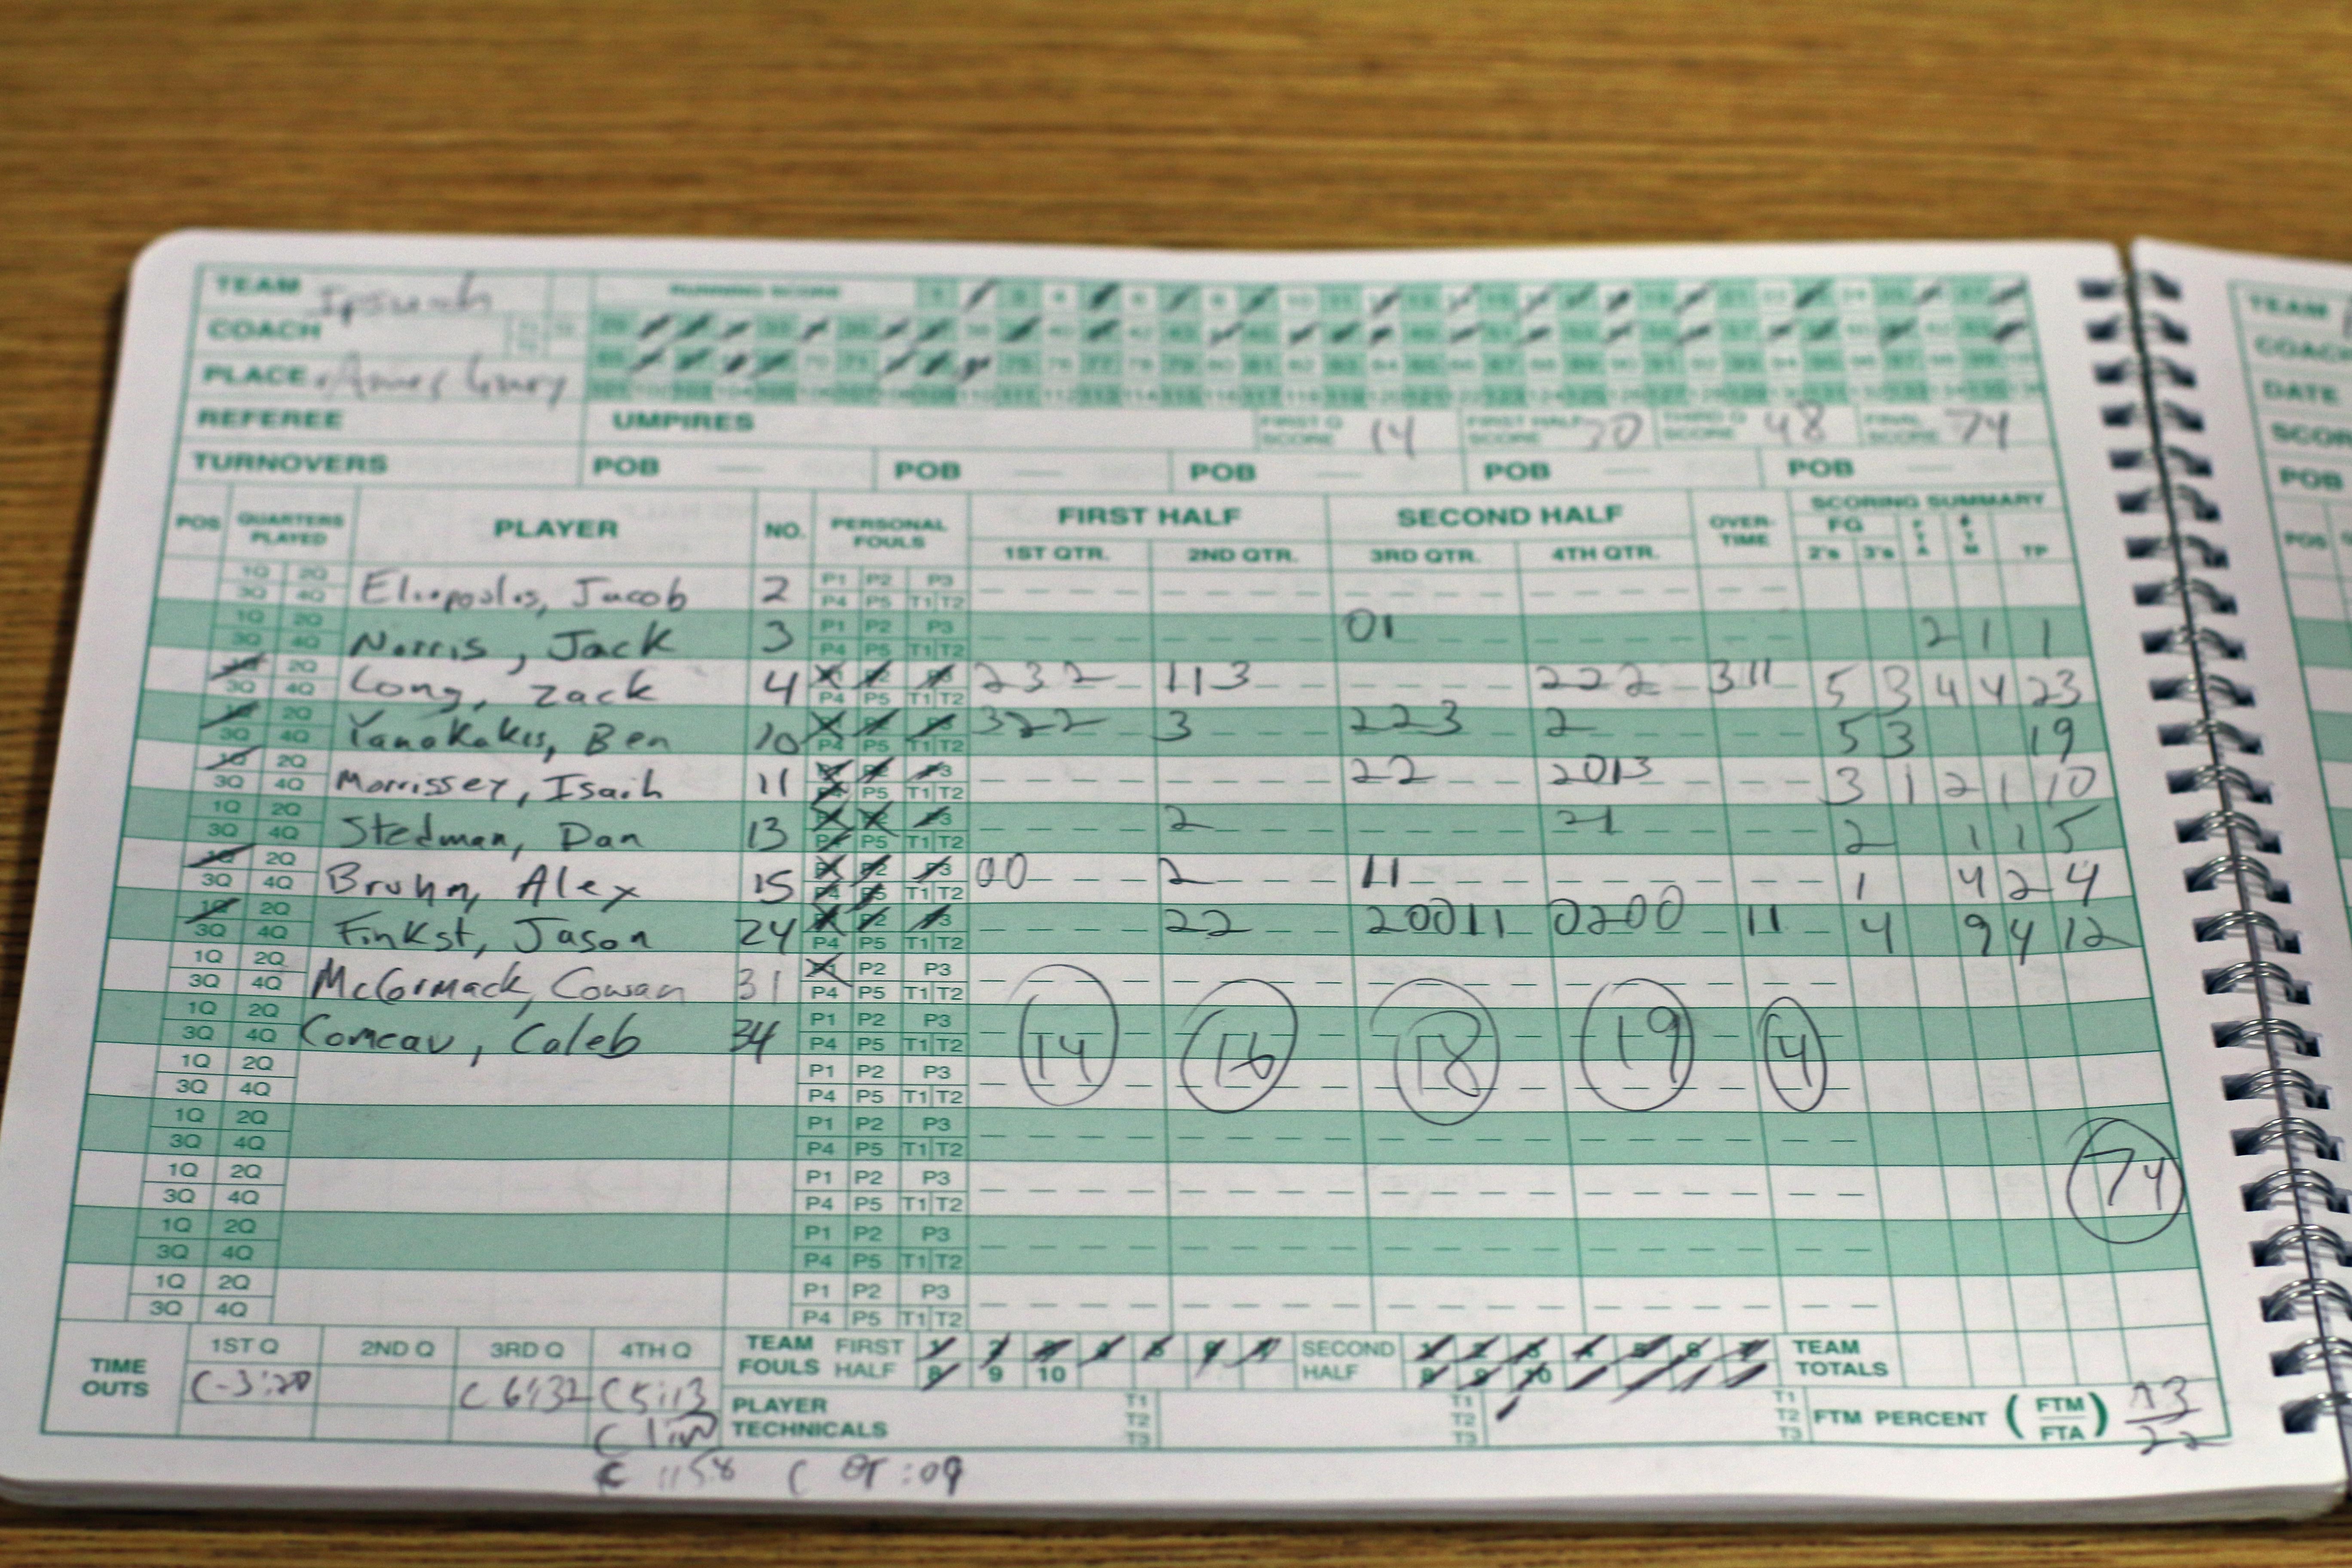 TEAM Ipswich RUNNING SCORE
COACH
PLACE Amesbury
REFEREE UMPIRES FIRST Q SCORE 14 FIRST HALF SCORE 30 THIRD Q SCORE 48 FINAL SCORE 74
TURNOVERS POB — POB — POB — POB — POB —
POS QUARTERS PLAYED PLAYER NO. PERSONAL FOULS FIRST HALF SECOND HALF OVER-TIME SCORING SUMMARY
1ST QTR. 2ND QTR. 3RD QTR. 4TH QTR. FG 2's 3's FTA FTM TP
1Q 2Q 3Q 4Q Eliopoulos, Jacob 2 P1 P2 P3 P4 P5 T1 T2
1Q 2Q 3Q 4Q Norris, Jack 3 P1 P2 P3 P4 P5 T1 T2 01 2 1 1
1Q 2Q 3Q 4Q Long, Zack 4 P1 P2 P3 P4 P5 T1 T2 232 113 222 311 5 3 4 4 23
1Q 2Q 3Q 4Q Yanakakis, Ben 10 P1 P2 P3 P4 P5 T1 T2 322 3 223 2 5 3 19
1Q 2Q 3Q 4Q Morrissey, Isaih 11 P1 P2 P3 P4 P5 T1 T2 22 2013 3 1 2 1 10
1Q 2Q 3Q 4Q Stedman, Dan 13 P1 P2 P3 P4 P5 T1 T2 2 21 2 1 1 5
1Q 2Q 3Q 4Q Bruhm, Alex 15 P1 P2 P3 P4 P5 T1 T2 00 2 11 1 4 2 4
1Q 2Q 3Q 4Q Finkst, Jason 24 P1 P2 P3 P4 P5 T1 T2 22 20011 0200 11 4 9 4 12
1Q 2Q 3Q 4Q McCormack, Cowan 31 P1 P2 P3 P4 P5 T1 T2
1Q 2Q 3Q 4Q Comeau, Caleb 34 P1 P2 P3 P4 P5 T1 T2 14 16 18 19 4
1Q 2Q 3Q 4Q P1 P2 P3 P4 P5 T1 T2
1Q 2Q 3Q 4Q P1 P2 P3 P4 P5 T1 T2
1Q 2Q 3Q 4Q P1 P2 P3 P4 P5 T1 T2 74
1Q 2Q 3Q 4Q P1 P2 P3 P4 P5 T1 T2
1Q 2Q 3Q 4Q P1 P2 P3 P4 P5 T1 T2
TIME OUTS 1ST Q 2ND Q 3RD Q 4TH Q TEAM FOULS FIRST HALF 1 2 3 4 5 6 7 8 9 10 SECOND HALF 1 2 3 4 5 6 7 8 9 10 TEAM TOTALS
C-3:20 C 6:32 C 5:13 PLAYER TECHNICALS T1 T2 T3 T1 T2 T3 T1 T2 T3 FTM PERCENT (FTM/FTA) 13/22
C 1:58 C OT :09
TEAM
COACH
DATE
SCOR
POB
POS